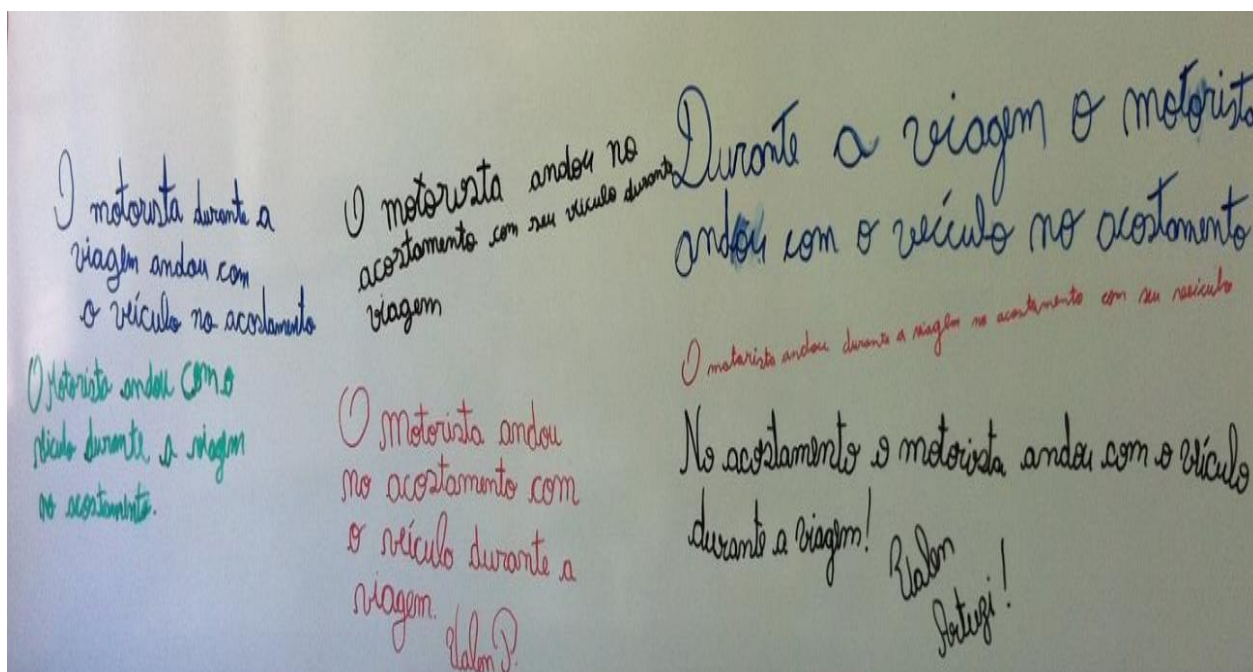 O motorista durante a
viagem andou com
o veículo no acostamento
O Motorista andou com o
veiculo durante a viagem
no acostamento.
O motorista andou no
acostamento com seu viculo durante
viagem
O motorista andou
no acostamento com
o veículo durante a
viagem.
Durante a viagem o motorista
andou com o veículo no acostamento
O motorista andou durante a viagem no acostamento com seu veiculo
No acostamento o motorista andou com o veículo
durante a viagem!